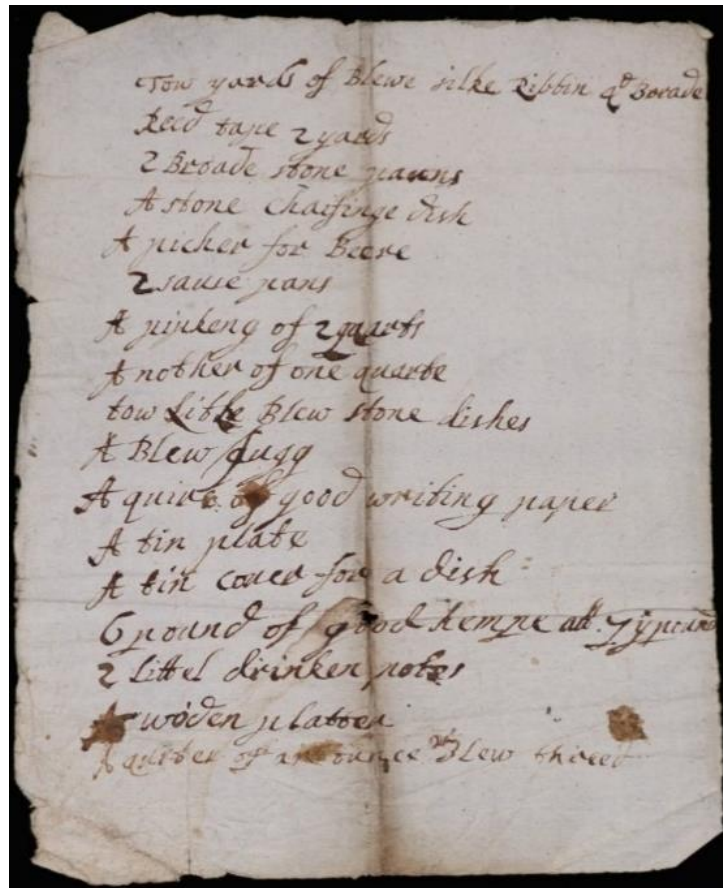 Tow yards of Blewe silke Ribbin 4d Borade
Reed tape 2 yards
2 Broade stone panns
A stone Chaifinge dish
A picher for Beere
2 sause pans
A pinkeng of 2 quarts
A nother of one quarte
tow Little Blew stone dishes
A Blew Jugg
A quire of good writing paper
A tin plate
A tin Couer for a dish
6 pound of good hempe att
2 Littel drinken potes
A woden platter
A qurter of an ounce Blew threed